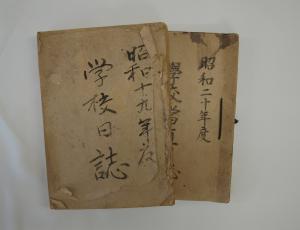 昭和十九年度
学校日誌
昭和二十年度
學校當直日誌